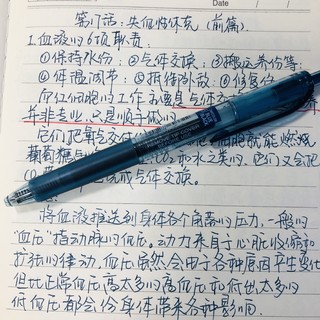 Date
第1话:失血临休克(前篇)
1.血液的6项职责:
①保持水份;②气体交换;③搬运养份等;
④体温调节;⑤抵挡外敌;⑥修复伤
红细胞的工作
并非专业,只是顺手做的
它们把氧交付 就能燃烧
葡萄糖 和水之类的,它们又会把
完成气体交换。
将血液推送到身体各个角落的压力,一般的
“血压”指动脉的血压。动力来自于心脏收缩和
扩张的律动,血压虽然会由于各种原因产生变化
但比正常血压高太多的高血压和低出太多的
低血压都会给身体带来各种影响。